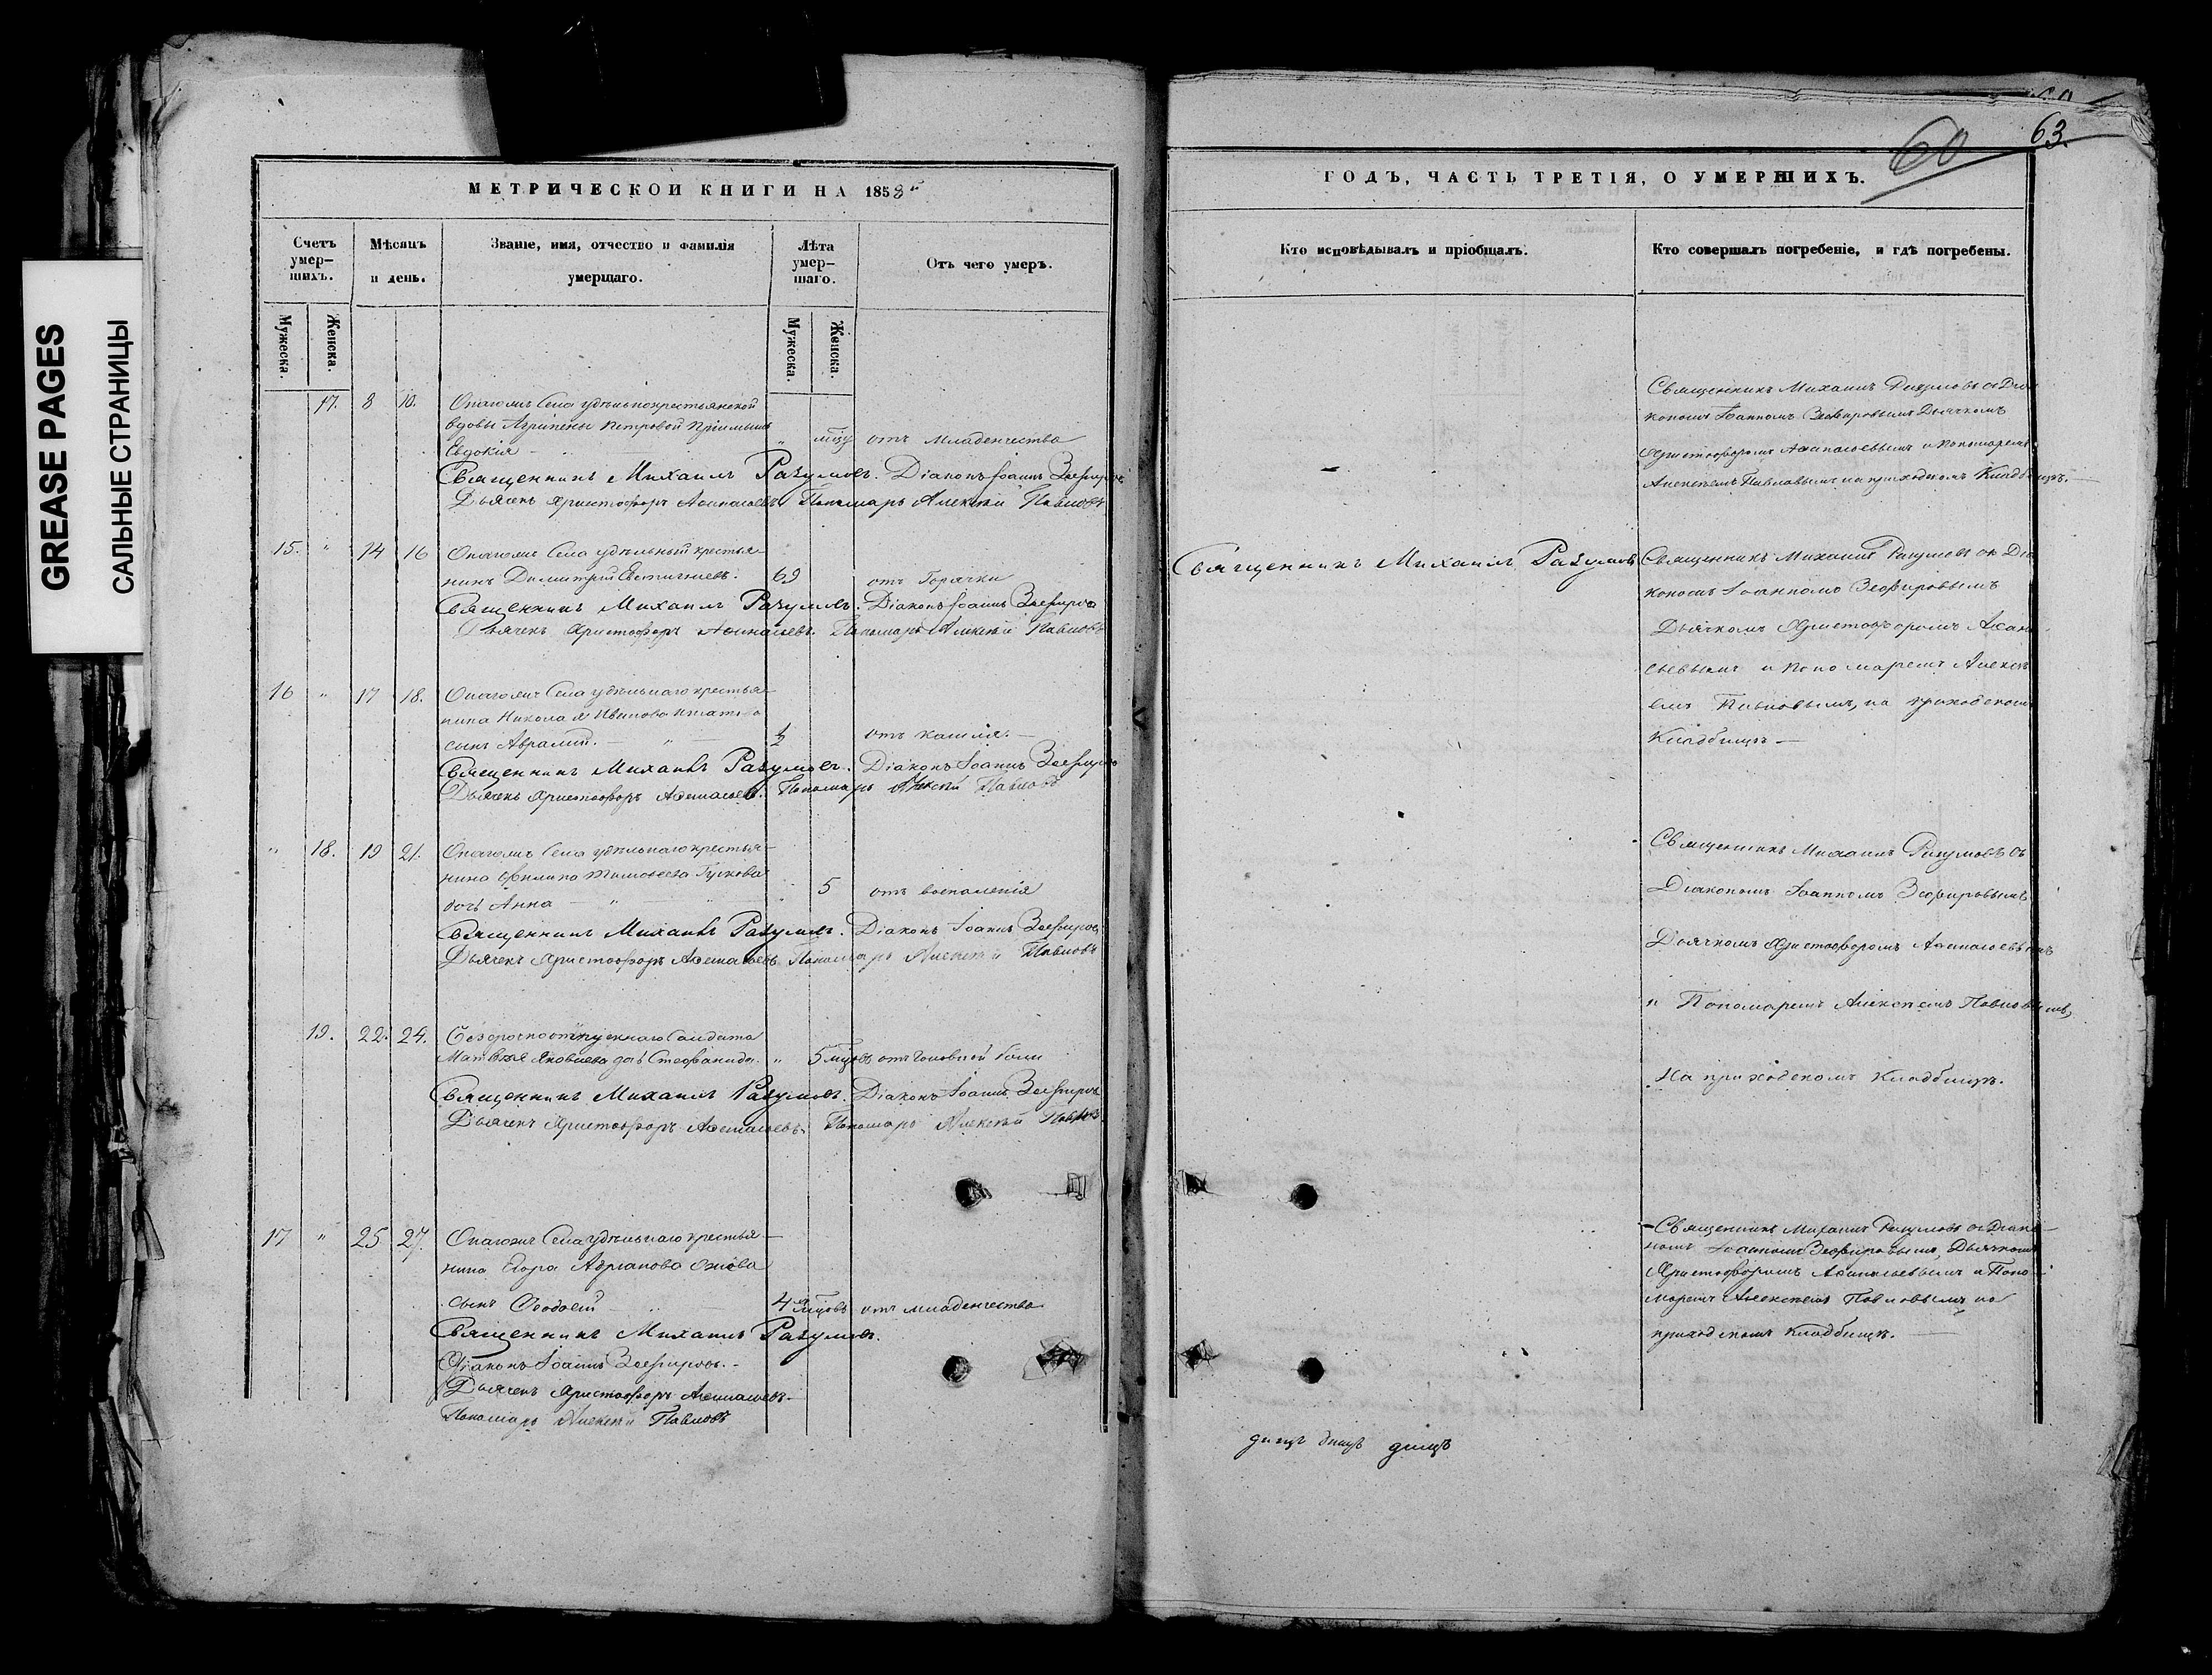 GREASE PAGES
САЛЬНЫЕ СТРАНИЦЫ
МЕТРИЧЕСКОЙ КНИГИ НА 1858й
Счетъ умер-
шихъ.
Мѣсяцъ
и день.
Званіе, имя, отчество и фамилія
умершаго.
Лѣта
умер-
шаго.
Отъ чего умеръ.
Мужеска.
Женска.
Мужеска.
Женска.
17. 8 10.
вдовы Агрипены Петровой
Евдокія " отъ младенчества
Священникъ Михаилъ Разумовъ. Діаконъ Іоаннъ Зефировъ
Дьячекъ Христофоръ Аѳанасьевъ Пономарь Алексѣй Павловъ
15. " 14 16 Села удѣльный крестья-
нинъ Димитрій 69 отъ Горячки
Священникъ Михаилъ Разумовъ. Діаконъ Іоаннъ Зефировъ
Дьячекъ Христофоръ Аѳанасьевъ. Пономарь Алексѣй Павловъ
16 " 17 18. Села удѣльнаго крестья-
нина Николая Иванова
сынъ Авраамій. — " — ½ отъ кашля. —
Священникъ Михаилъ Разумовъ. Діаконъ Іоаннъ Зефировъ
Дьячекъ Христофоръ Аѳанасьевъ. Пономарь Алексѣй Павловъ
" 18. 19 21. Села удѣльнаго крестья-
нина Филипа Тимоѳеева Гускова
дочь Анна — " — " 5 отъ воспаленія
Священникъ Михаилъ Разумовъ. Діаконъ Іоаннъ Зефировъ
Дьячекъ Христофоръ Аѳанасьевъ Пономарь Алексѣй Павловъ
19. 22. 24. Солдата
Матвѣя Яковлева дочь Стефанида. " 5 мцовъ отъ головной боли
Священникъ Михаилъ Разумовъ. Діаконъ Іоаннъ Зефировъ
Дьячекъ Христофоръ Аѳанасьевъ. Пономарь Алексѣй Павловъ
17 " 25 27. Села удѣльнаго крестья-
нина Егора Адріанова
сынъ Ѳеодосій 4 мцовъ отъ младенчества
Священникъ Михаилъ Разумовъ.
Діаконъ Іоаннъ Зефировъ. -
Дьячекъ Христофоръ Аѳанасьевъ
Пономарь Алексѣй Павловъ
60
63.
ГОДЪ, ЧАСТЬ ТРЕТІЯ, О УМЕРШИХЪ.
Кто исповѣдывалъ и пріобщалъ.
Кто совершалъ погребеніе, и гдѣ погребены.
Священникъ Михаилъ Разумовъ съ Діа
кономъ Іоанномъ Зефировымъ Дьячкомъ
Христофоромъ Аѳанасьевымъ и Пономаремъ
Алексѣемъ Павловымъ на приходскомъ Кладбищѣ. —
Священникъ Михаилъ Разумовъ
Священникъ Михаилъ Разумовъ съ Діа
кономъ Іоанномъ Зефировымъ
Дьячкомъ Христофоромъ Аѳана
сьевымъ и Пономаремъ Алексѣ
емъ Павловымъ, на приходскомъ
Кладбищѣ —
Священникъ Михаилъ Разумовъ съ
Діакономъ Іоанномъ Зефировымъ
Дьячкомъ Христофоромъ Аѳанасьевымъ
и Пономаремъ Алексѣемъ Павловымъ,
на приходскомъ Кладбищѣ.
Священникъ Михаилъ Разумовъ съ Діако-
номъ Іоанномъ Зефировымъ, Дьячкомъ
Христофоромъ Аѳанасьевымъ и Поно-
маремъ Алексѣемъ Павловымъ на
приходскомъ кладбищѣ. —